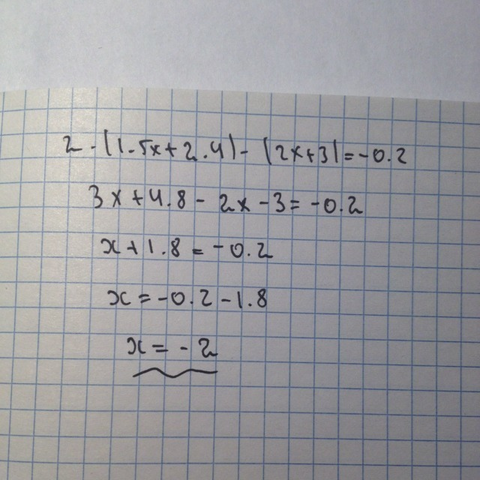 2·(1.5x+2.4)-(2x+3)=-0.2
3x+4.8-2x-3=-0.2
x+1.8=-0.2
x=-0.2-1.8
x=-2